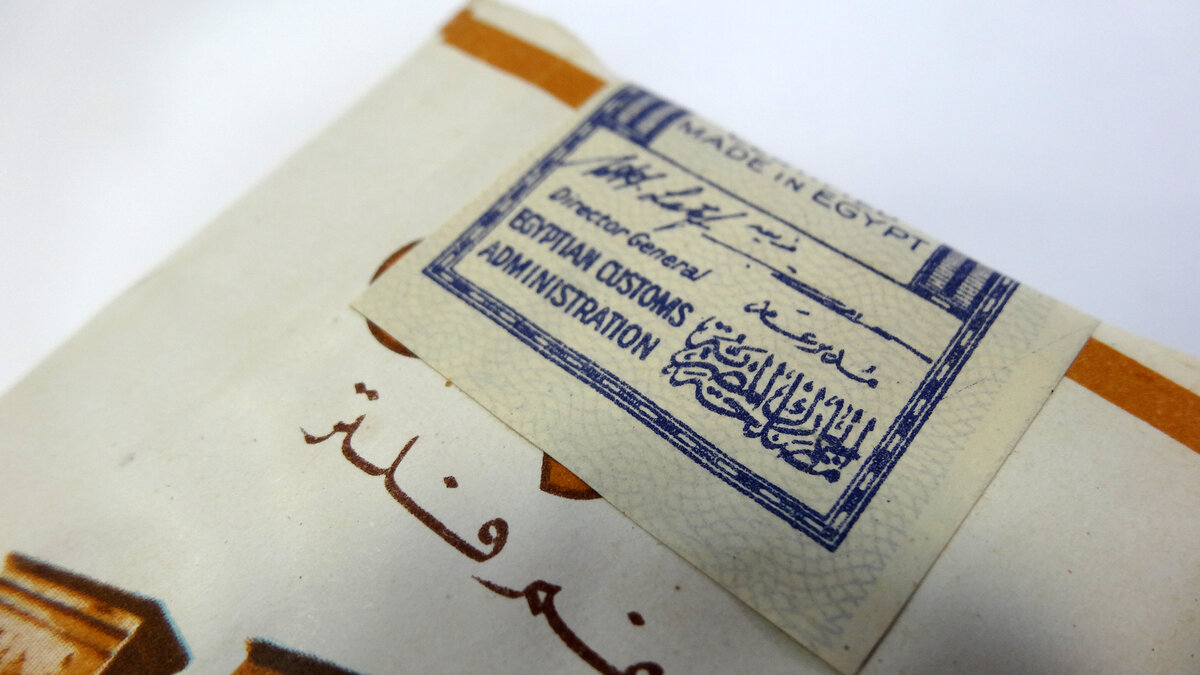 MADE IN EGYPT
Director General
EGYPTIAN CUSTOMS
ADMINISTRATION
مدير عام
مصلحة الجمارك المصرية
فم فلتر